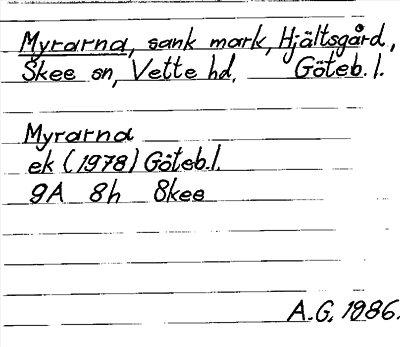 Myrarna, sank mark, Hjältsgård,
Skee sn, Vette hd, Göteb. l.
Myrarna
ek (1978) Göteb. l.
9A 8h Skee
A.G. 1986.